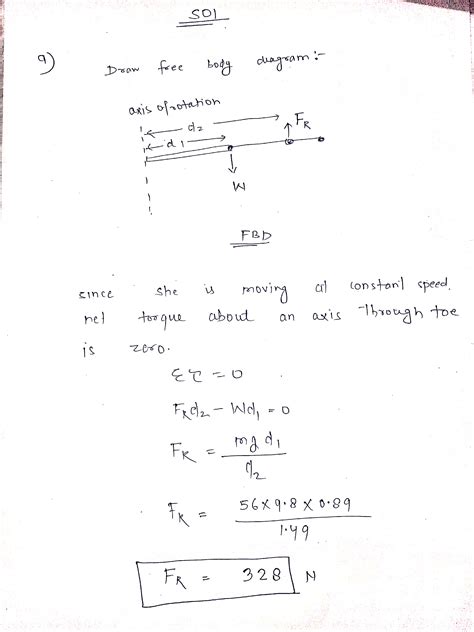 SOl
a) Draw free body diagram:-
axis of rotation
d2
d1
FR
W
FBD
since she is moving at constant speed.
net torque about an axis Through toe
is zero.
Στ = 0
FRd2 - Wd1 = 0
FR = mg d1
d2
FR = 56×9.8×0.89
1.49
FR = 328 N